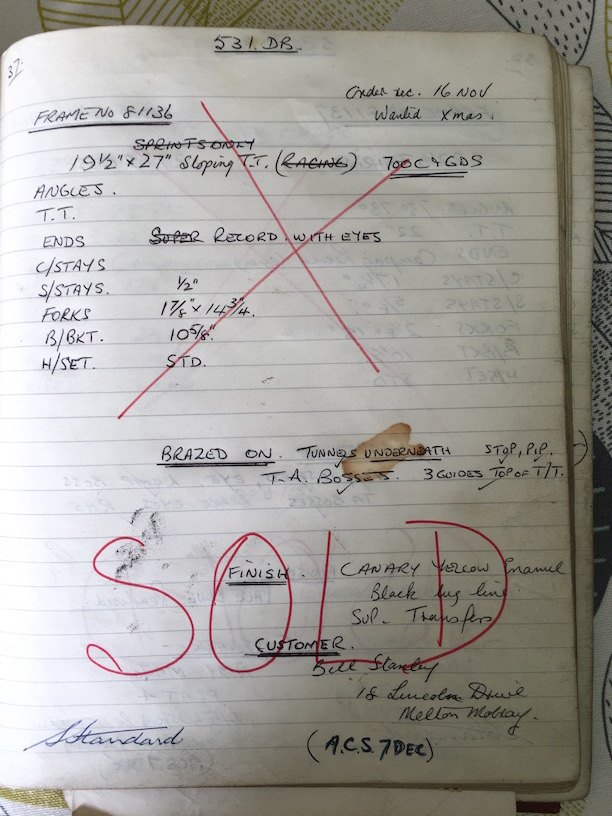 531. DB.
37.
Order rec. 16 NOV
FRAME NO 81136
Wanted Xmas.
SPRINTS ONLY
19½" x 27" Sloping T.T. (RACING) 700C & GDS
ANGLES.
T.T.
ENDS SUPER RECORD. WITH EYES
C/STAYS
S/STAYS. ½"
FORKS 1⅞" x 14¾.
B/BKT. 10⅝".
H/SET. STD.
BRAZED ON. TUNNELS UNDERNEATH STOP, PIP.
T.A. BOSSES. 3 GUIDES TOP OF T/T.
SOLD
FINISH. CANARY YELLOW Enamel
Black lug line
Sup. Transfers
CUSTOMER.
Bill Stanley
18 Lincoln Drive
Melton Mobray.
Standard
(A.C.S. 7 DEC)